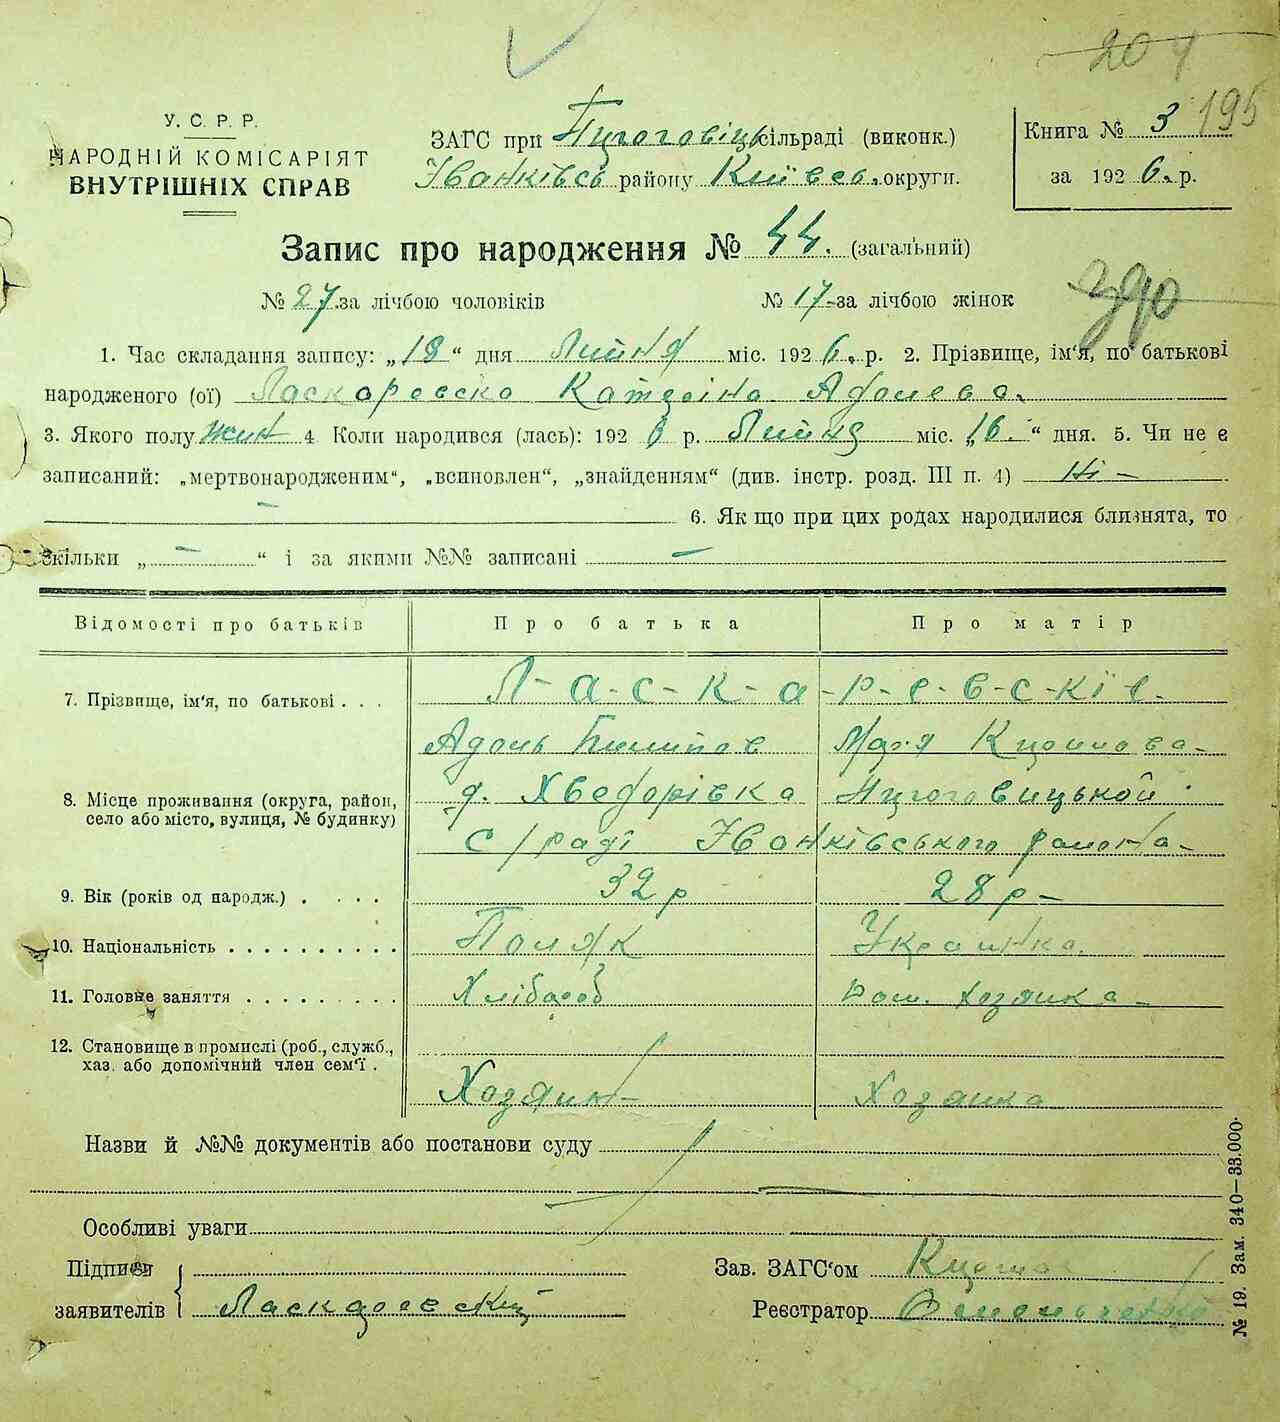 204
195
У. С. Р. Р.
НАРОДНІЙ КОМІСАРІЯТ
ВНУТРІШНІХ СПРАВ
ЗАГС при сільраді (виконк.)
Іванківсь району Київсь. округи.
Книга № 3
за 1926. р.
Запис про народження № 44. (загальний)
№ 27 за лічбою чоловіків № 17-за лічбою жінок
1. Час складання запису: „18“ дня Липня міс. 1926. р. 2. Прізвище, ім'я, по батькові
народженого (ої) Ласкаревска Катеріна
3. Якого полу жін 4. Коли народився (лась): 1926 р. Липня міс. „16.“ дня. 5. Чи не є
записаний: „мертвонародженим“, „всиновлен“, „знайденням“ (див. інстр. розд. III п. 4) Ні –
– 6. Як що при цих родах народилися близнята, то
скільки „ – “ і за якими №№ записані –
Відомості про батьків Про батька Про матір
7. Прізвище, ім'я, по батькові . . . Л-а-с-к-а-р-е-в-с-кіе-
Пилипов Мар.я
8. Місце проживання (округа, район, д. Хведорівка
село або місто, вулиця, № будинку) с/раді Іванківського района-
9. Вік (років од народж.) . . . . 32 р 28 р –
10. Національність . . . . . . . . . . Поляк Украинка.
11. Головне заняття . . . . . . . . . Хлібороб Дом. хозяйка –
12. Становище в промислі (роб., служб.,
хаз. або допомічний член сем'ї . Хозяин – Хозяйка
Назви й №№ документів або постанови суду
Особливі уваги
Підписи Зав. ЗАГС'ом
заявителів Реєстратор
№ 19. Зам. 340—33.000.